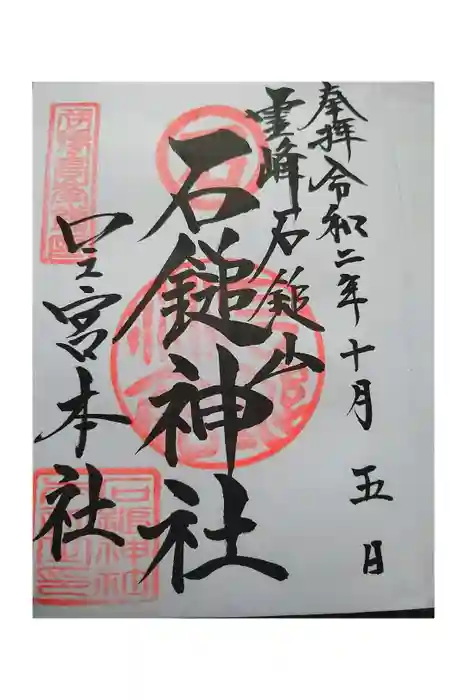 奉拝 令和二年十月 五 日
霊峰石鎚山
石鎚神社
口之宮本社
石鎚神社